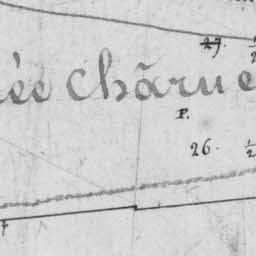 27. 1/2
ée Chãrue
P.
26. 1/2